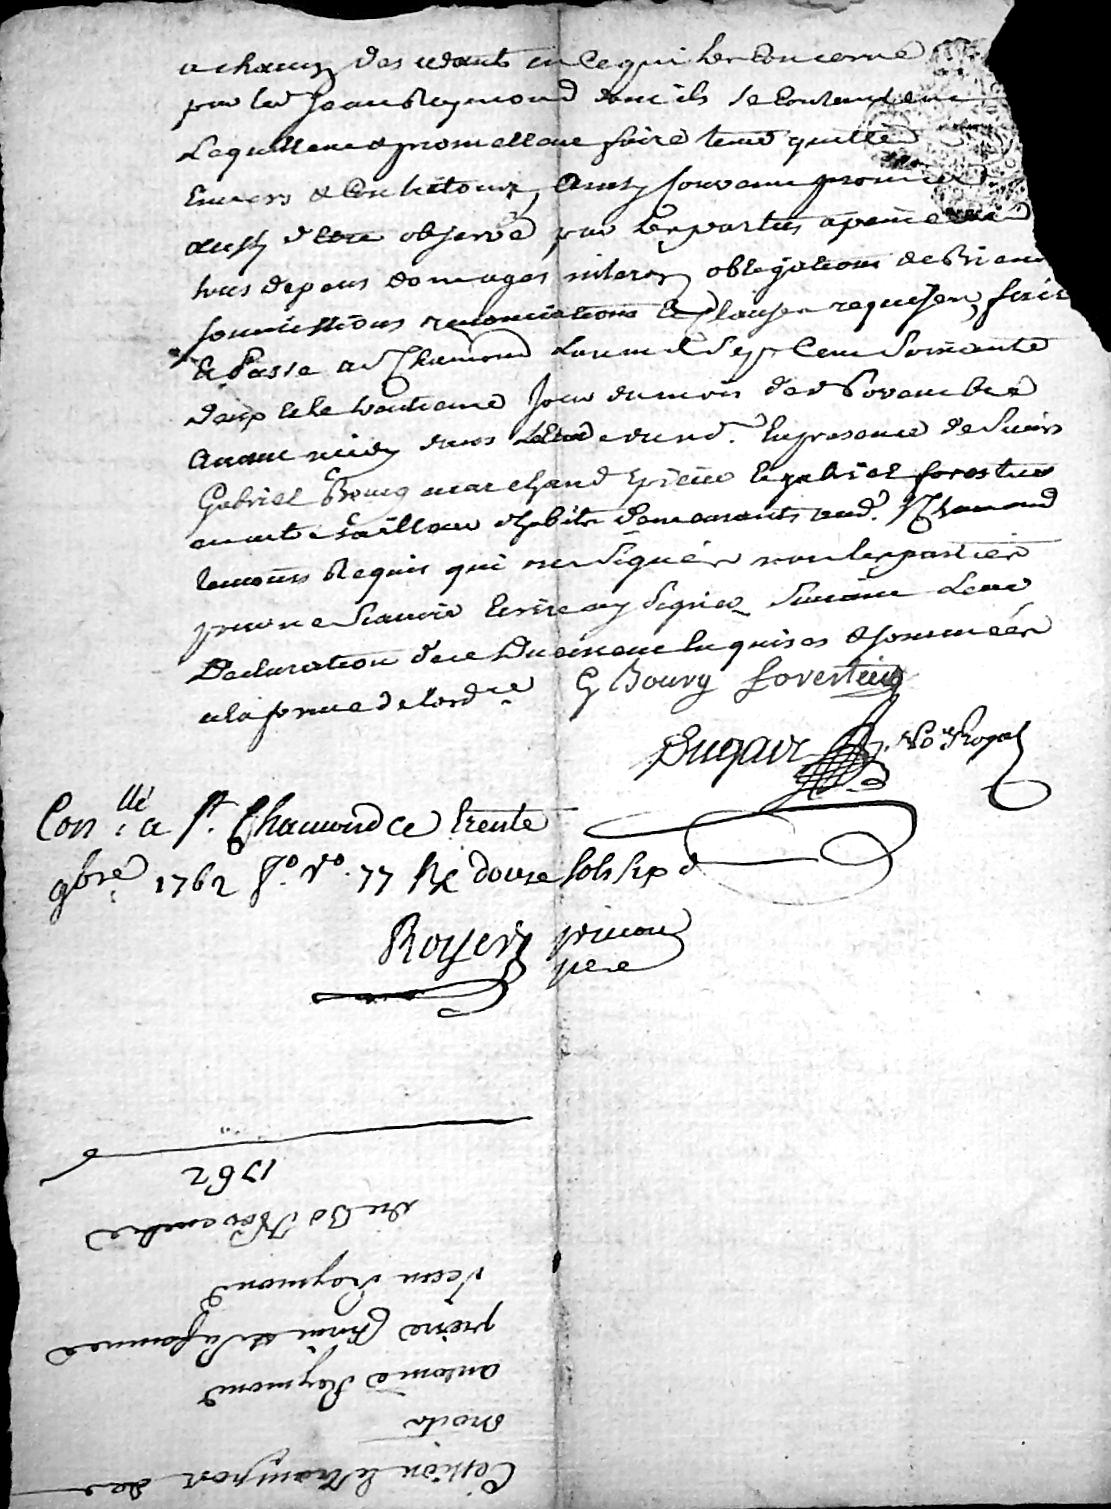 a chacun des cedants en ce qui les concerne
par led Jean Reymond dont ils se contentent
Lequittent & promettent faire tenir quitte
Envers & contre tous, Ainsy convenu promis
aussy d'etre observé par les parties a peine de
tous depens domages interez obligations de Biens
soumissions renonciations & clauses requises, fait
& Passé a St Chamond L'an mil sept cent soixante
deux & le trentieme jour du mois de Novembre
avant midy dans Letude dud. no.re En presence de Sieurs
Gabriel Bourg marchand epicier & gabriel forestier
maitre tailleur d'habits demeurants aud. St Chamond
temoins Requis qui ont Signés non les parties
pour ne Scavoir Ecrire ny Signer Suivant Leur
Declaration de ce Duement Enquises & sommées
a la forme de l'ord.ce G Bourg forestier
Dugair No.re Royal
Con.llé a St. Chamond ce trente
9bre 1762 f.o v.o 77 Rc douze sols six d
Royer pour
pere
Cession & transport de
droits
antoine Reymond
pierre & sa femme
Jean Reymond
du 30 Novembre
1762